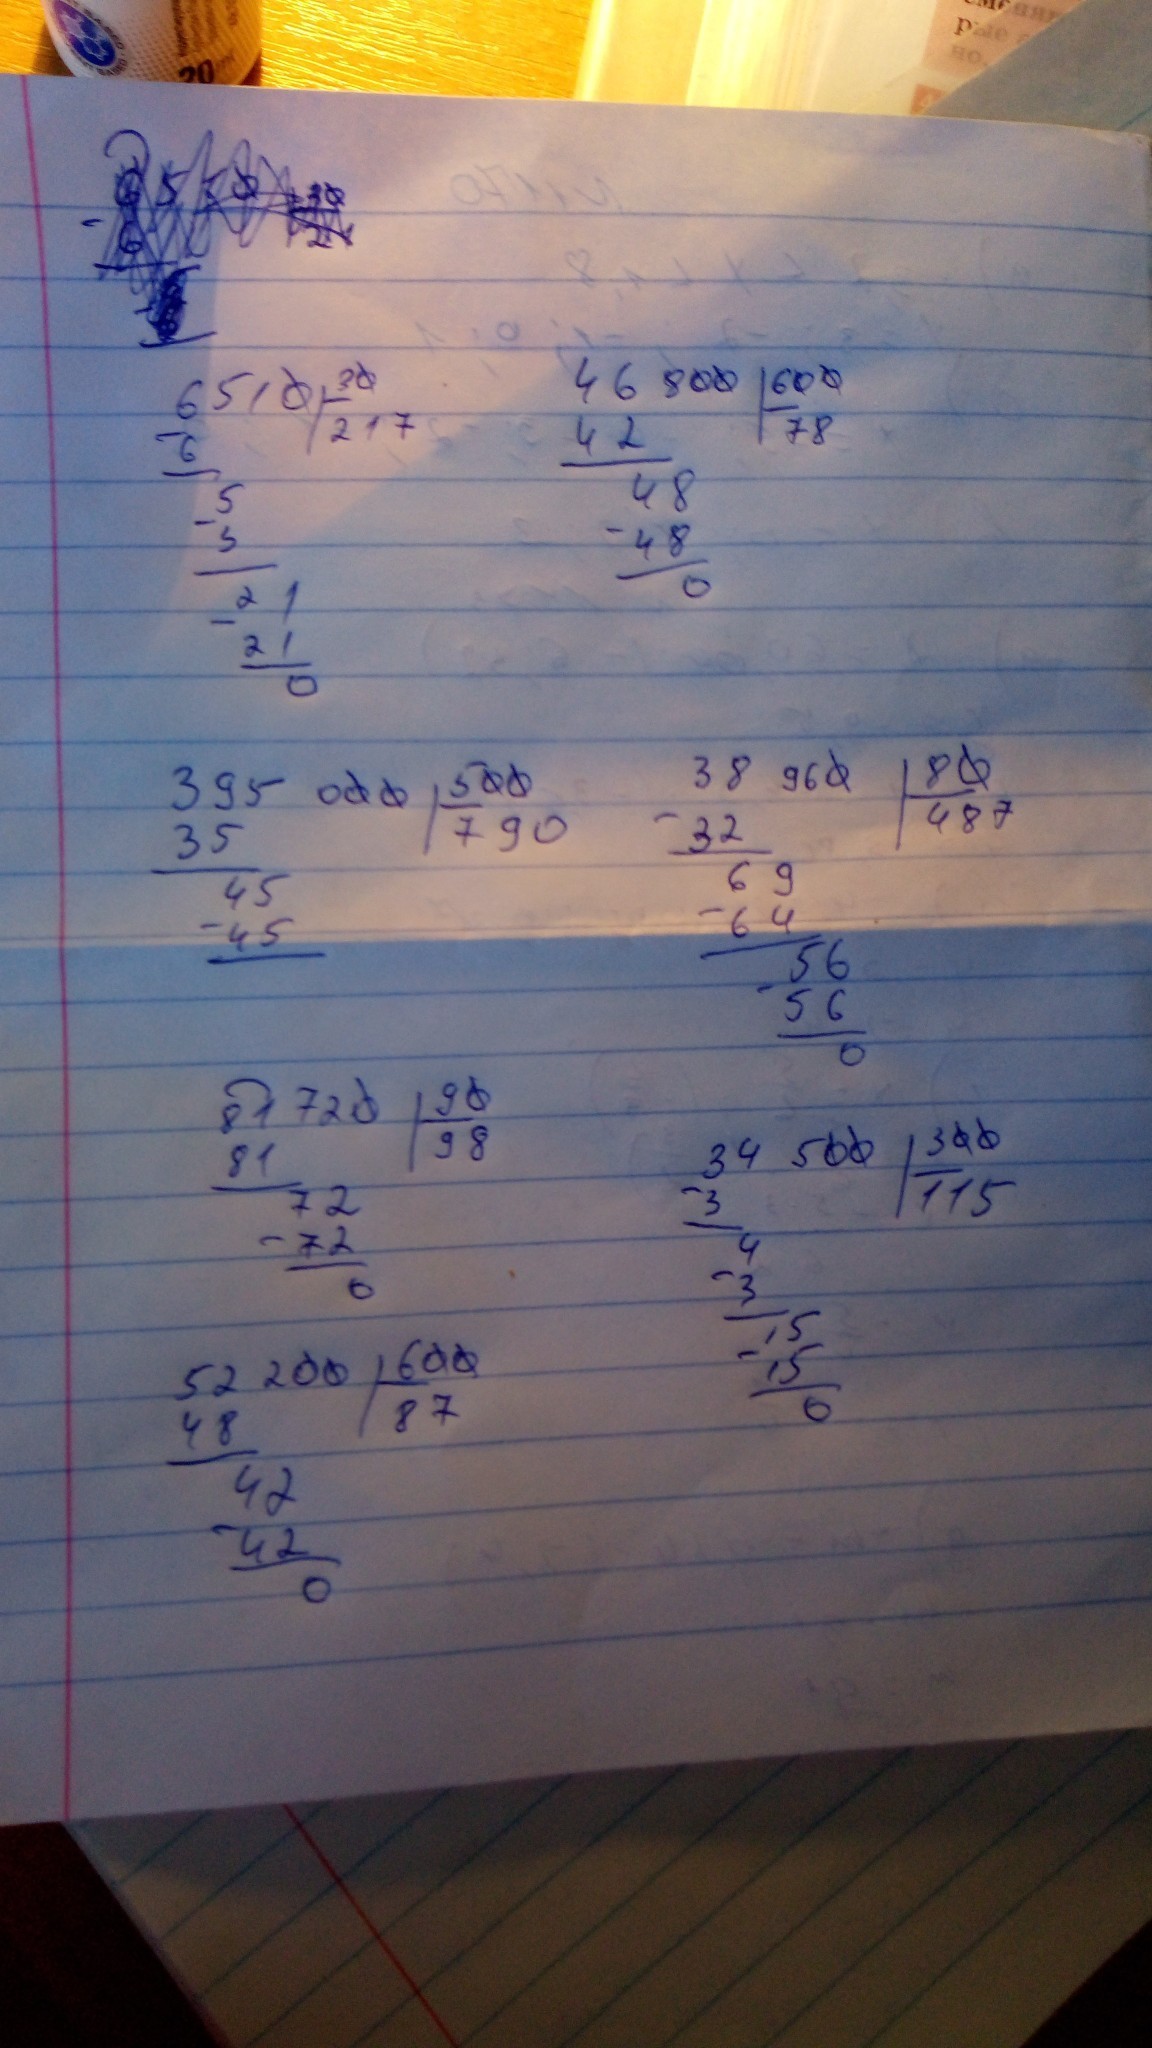 20
рые
но.
6510 30
6 217
5
3
21
21
0
46 800 600
42 78
48
- 48
0
395 000 500
35 790
45
- 45
38 960 80
- 32 487
69
- 64
56
- 56
0
81 720 90
81 98
72
- 72
0
34 500 300
- 3 115
4
- 3
15
- 15
0
52 200 600
48 87
42
- 42
0